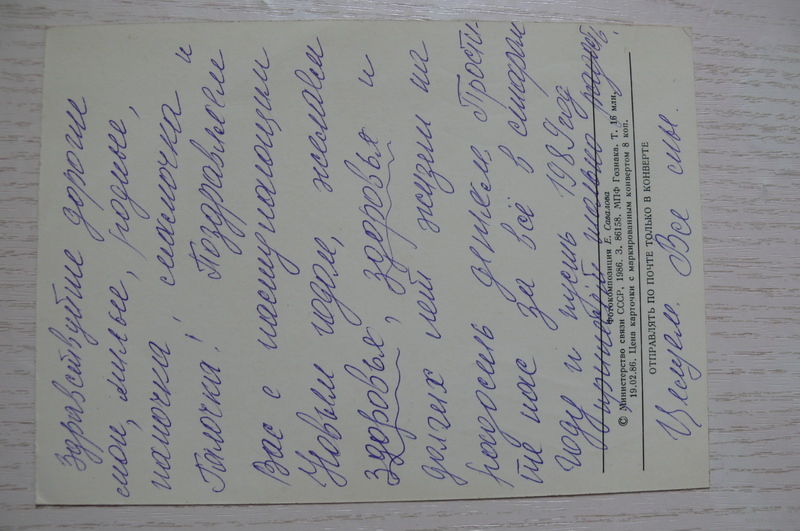 Здравствуйте дорогие
мои, милые, родные,
папочка, мамочка и
Галочка! Поздравляем
Вас с наступающим
Новым годом, желаем
здоровья, здоровья и
долгих лет жизни на
радость детям. Прости
те нас за всё в старом
году и пусть 1989 год
принесёт только радость.
Фотокомпозиция Е. Савалова
© Министерство связи СССР, 1986. З. 86158. МПФ Гознака. Т. 16 млн.
19.02.86. Цена карточки с маркированным конвертом 8 коп.
ОТПРАВЛЯТЬ ПО ПОЧТЕ ТОЛЬКО В КОНВЕРТЕ
Целуем. Все мы.